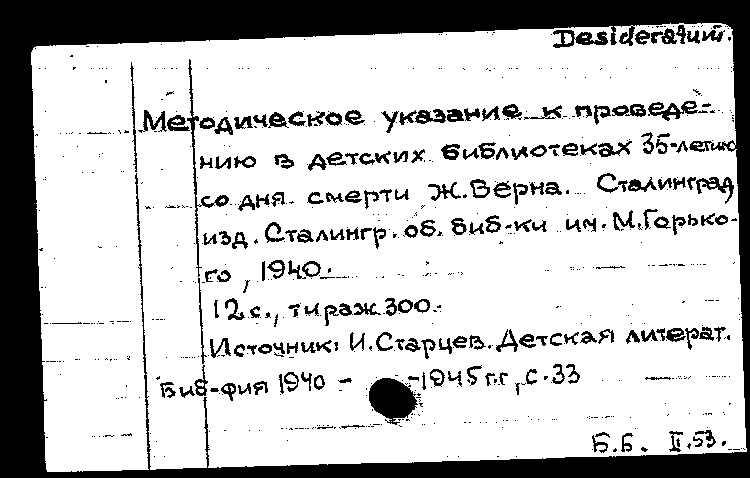 Desideratum.
Методическое указание к проведе-
нию в детских библиотеках 35-летию
со дня смерти Ж.Верна. Сталинград
изд. Сталингр. об. биб-ки им. М.Горько-
го, 1940.
12 с., тираж 300.
Источник: И.Старцев. Детская литерат.
Биб-фия 1940 - -1945 гг, с.33
Б.Б. II.53.